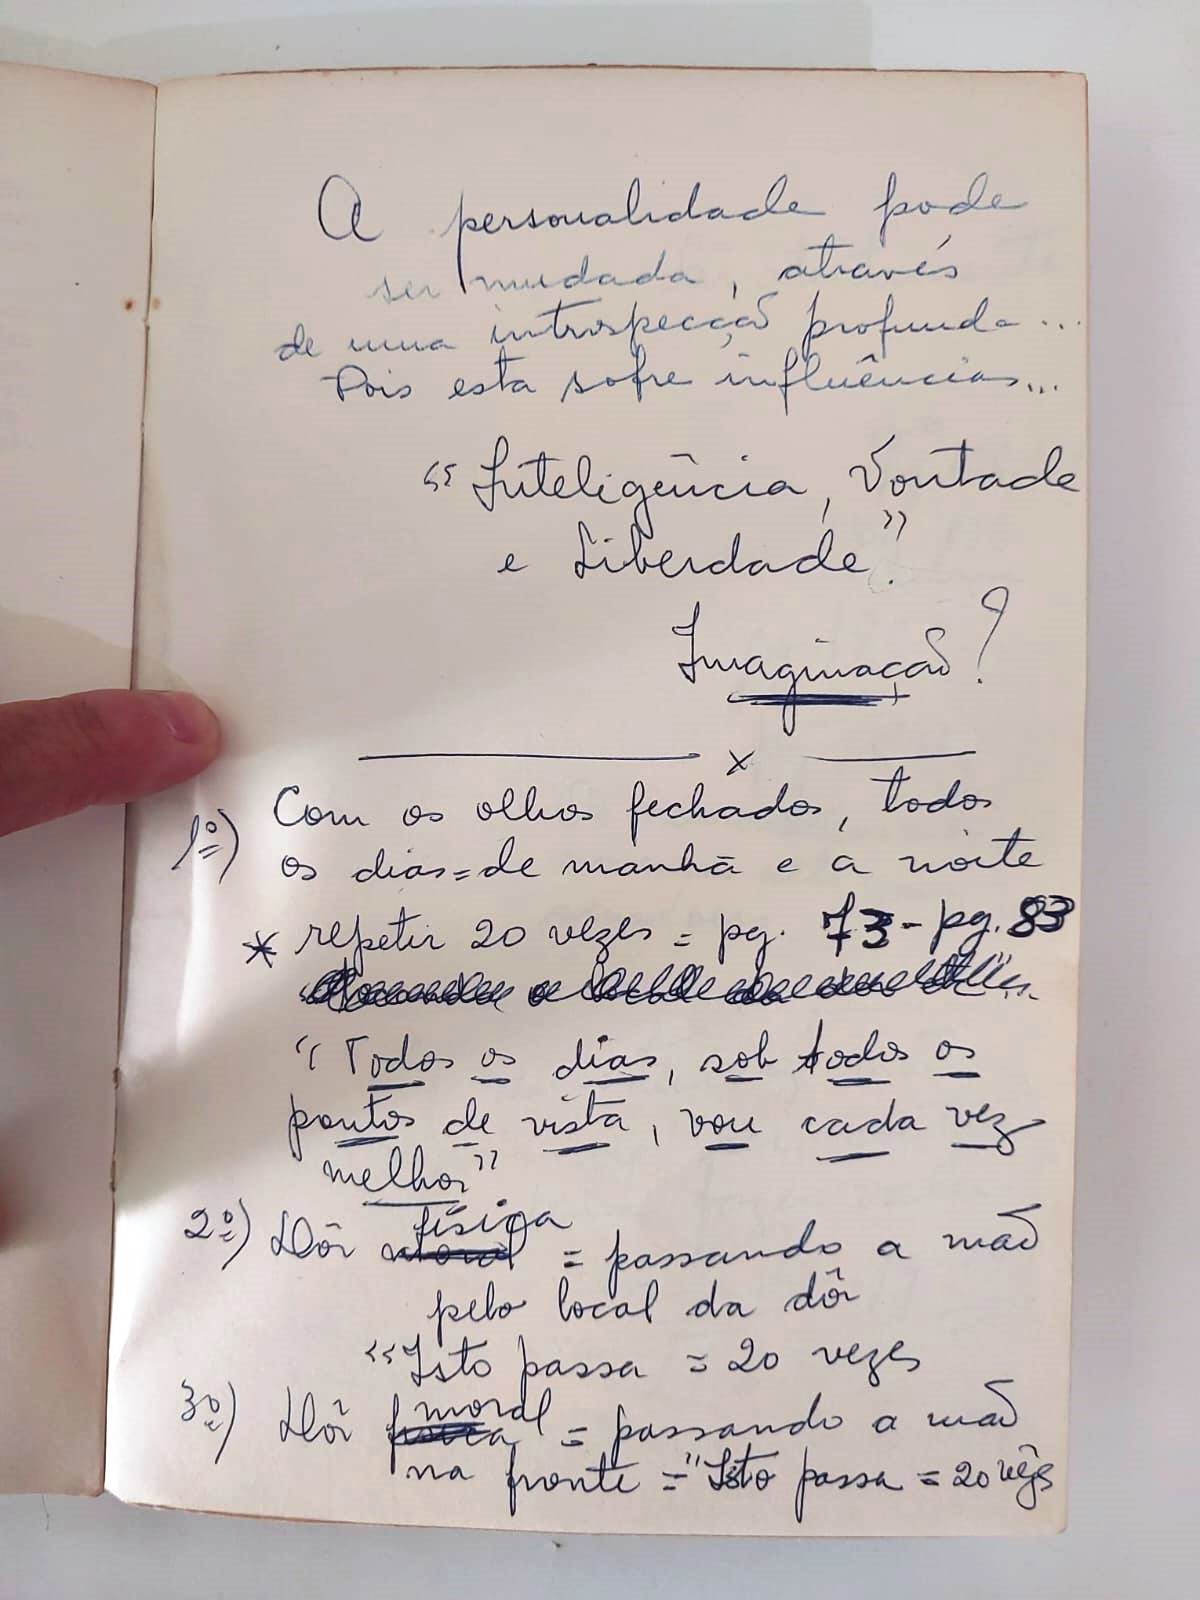 A personalidade pode
ser mudada, através
de uma introspecção profunda...
Pois esta sofre influências...
"Inteligência, Vontade
e Liberdade".
Imaginação?
x
1º) Com os olhos fechados, todos
os dias = de manhã e a noite
* repetir 20 vezes = pg. 73 - pg. 83
"Todos os dias, sob todos os
pontos de vista, vou cada vez
melhor"
2º) Dôr física = passando a mão
pelo local da dôr
"Isto passa = 20 vezes
3º) Dôr moral = passando a mão
na fronte = "Isto passa = 20 vêzes